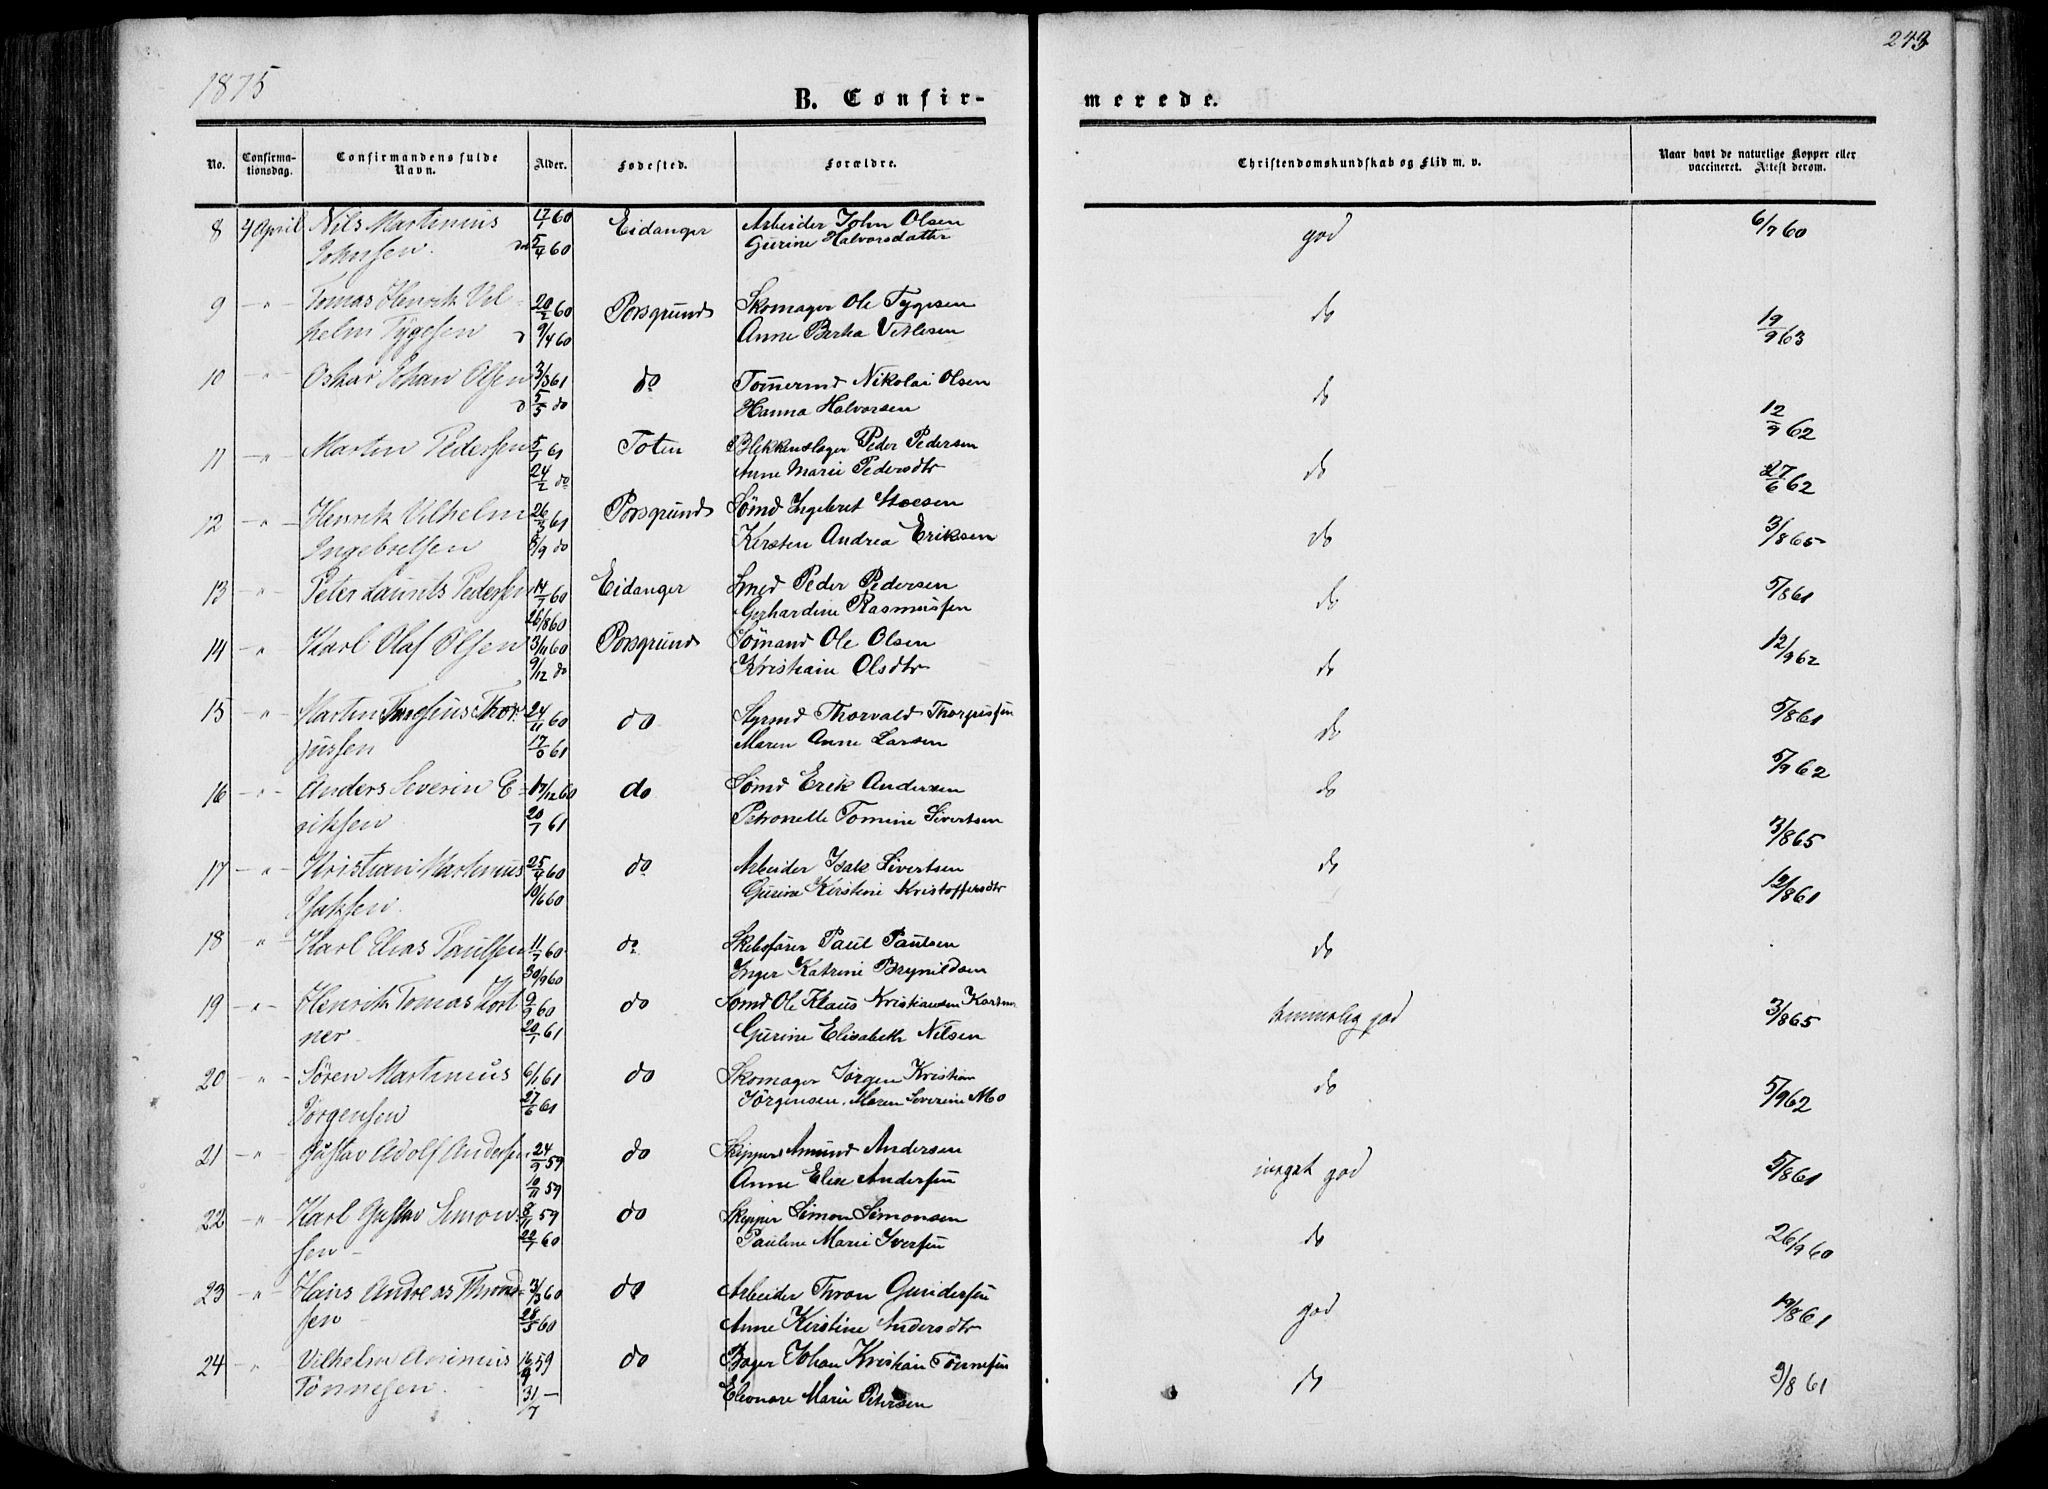 1875
243
B. Confir-
merede.
No. Confirma-tionsdag. Confirmandens fulde Navn. Alder. Fødested. Forældre. Christendomskundskab og Flid m. v. Naar havt de naturlige Kopper eller vaccineret. Attest derom.
8 4 April Nils Martinius 17/1 60 Eidanger Arbeider John Olsen god 6/7 60
Johnsen. 5/4 60 Gurine Halvorsdatter
9 - " - Tomas Henrik Vil- 20/2 60 Porsgrund Skomager Ole Tygesen do 19/9 63
helm Tygesen 9/4 60 Anne Berta Vetlesen
10 - " - Oskar Johan Olsen 3/3 61 do Tømermd Nikolai Olsen do 12/9 62
5/5 do Hanna Halvorsen
11 - " - Martin Pedersen 5/1 61 Toten Blikkenslager Peder Pedersen do 27/6 62
24/2 do Anne Marie Pedersdtr
12 - " - Henrik Vilhelm 26/3 61 Porsgrund Sømd Ingebret do 3/8 65
Ingebretsen 8/9 do Kirsten Andrea Eriksen
13 - " - Peter Laurits Pedersen 14/7 60 Eidanger Smed Peder Pedersen do 5/8 61
26/8 60 Gerhardine Rasmussen
14 - " - Karl Olaf Olsen 3/11 60 Porsgrund Sømand Ole Olsen do 12/9 62
9/12 do Kristiane Olsdtr
15 - " - Martin Thor- 24/11 60 do Styrmd Thorvald do 5/8 61
jussen 17/ 61 Maren Anne Larsen
16 - " - Anders Severin E- 17/12 60 do Sømd Erik Andersen do 5/9 62
riksen 20/1 61 Petronelle Tomine Sivertsen
17 - " - Kristian Martinius 25/ 60 do Arbeider Isak Sivertsen do 3/8 65
Isaksen. 10/6 60 Gurine Kirstine Kristoffersdtr 12/8 61
18 - " - Karl Elias Paulsen 11/7 60 do Skibsfører Paul Paulsen do
30/9 60 Inger Katrine Brynildsen
19 - " - Henrik Tomas Kort- 9/9 60 do Sømd Ole Klaus Kristiansen temmelig god 3/8 65
ner 20/1 61 Gurine Elisabeth Nilsen
20 - " - Søren Martinius 6/1 61 do Skomager Jørgen Kristian do 5/9 62
Jørgensen 27/6 61 Jørgensen. Maren Severine Mo
21 - " - Gustav Adolf Andersen 24/9 59 do Skipper Amund Andersen meget god 5/8 61
10/11 59 Anne Elise Andersen
22 - " - Karl Gustav Simon- 8/11 59 do Skipper Simon Simonsen do 26/9 60
sen 22/1 60 Pauline Marie Iversen
23 - " - Hans Andreas Thrond- 3/3 60 do Arbeider Tron Gundersen god 19/8 61
sen 28/5 60 Anne Kirstine Andersdtr
24 - " - Vilhelm Animus 16/4 59 do Bager Johan Kristian Tønnesen do 9/8 61
Tønnesen. 31/7 - Eleonore Marie Petersen